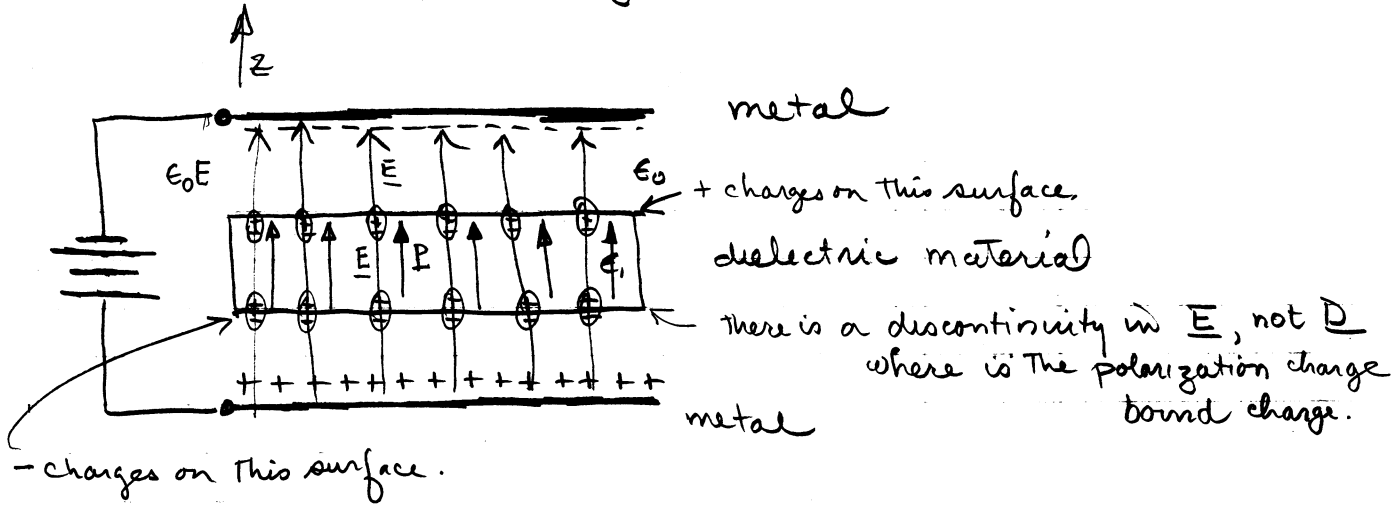 z
metal
ϵ₀E
E
ϵ₀
+ charges on this surface.
dielectric material
E
P
ϵ₁
there is a discontinuity in E, not D
where is the polarization charge
bound charge.
metal
- charges on this surface.